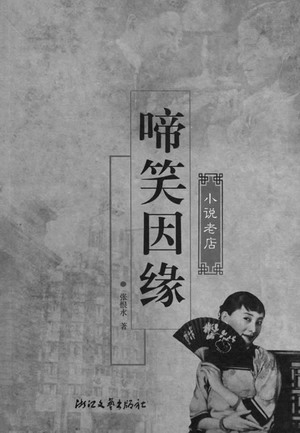 啼笑因缘
小说老店
张恨水 著
浙江文艺出版社